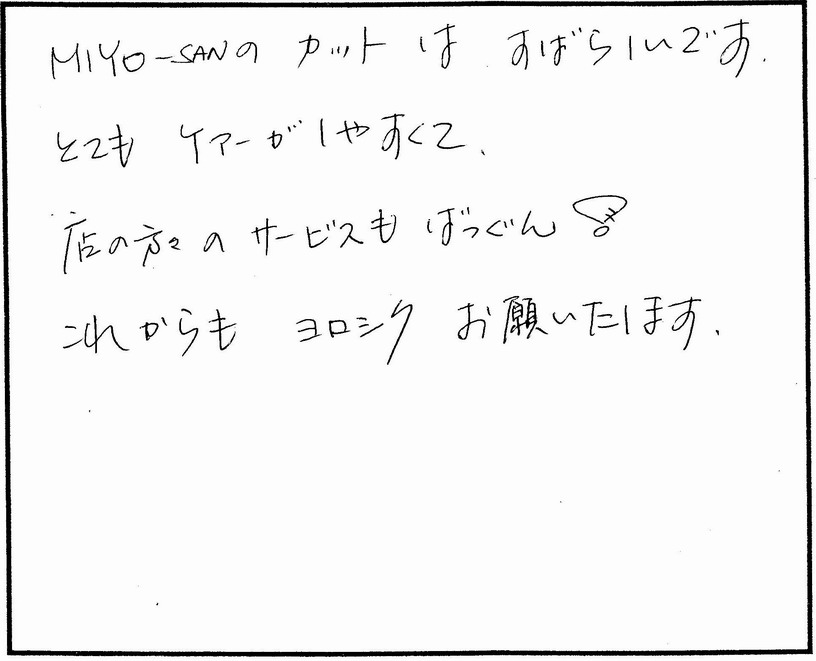 MIYO-SANの カットは すばらしいです.
とても ケアーがしやすくて、
店の方々の サービスも ばつぐん!
これからも ヨロシク お願いたします.